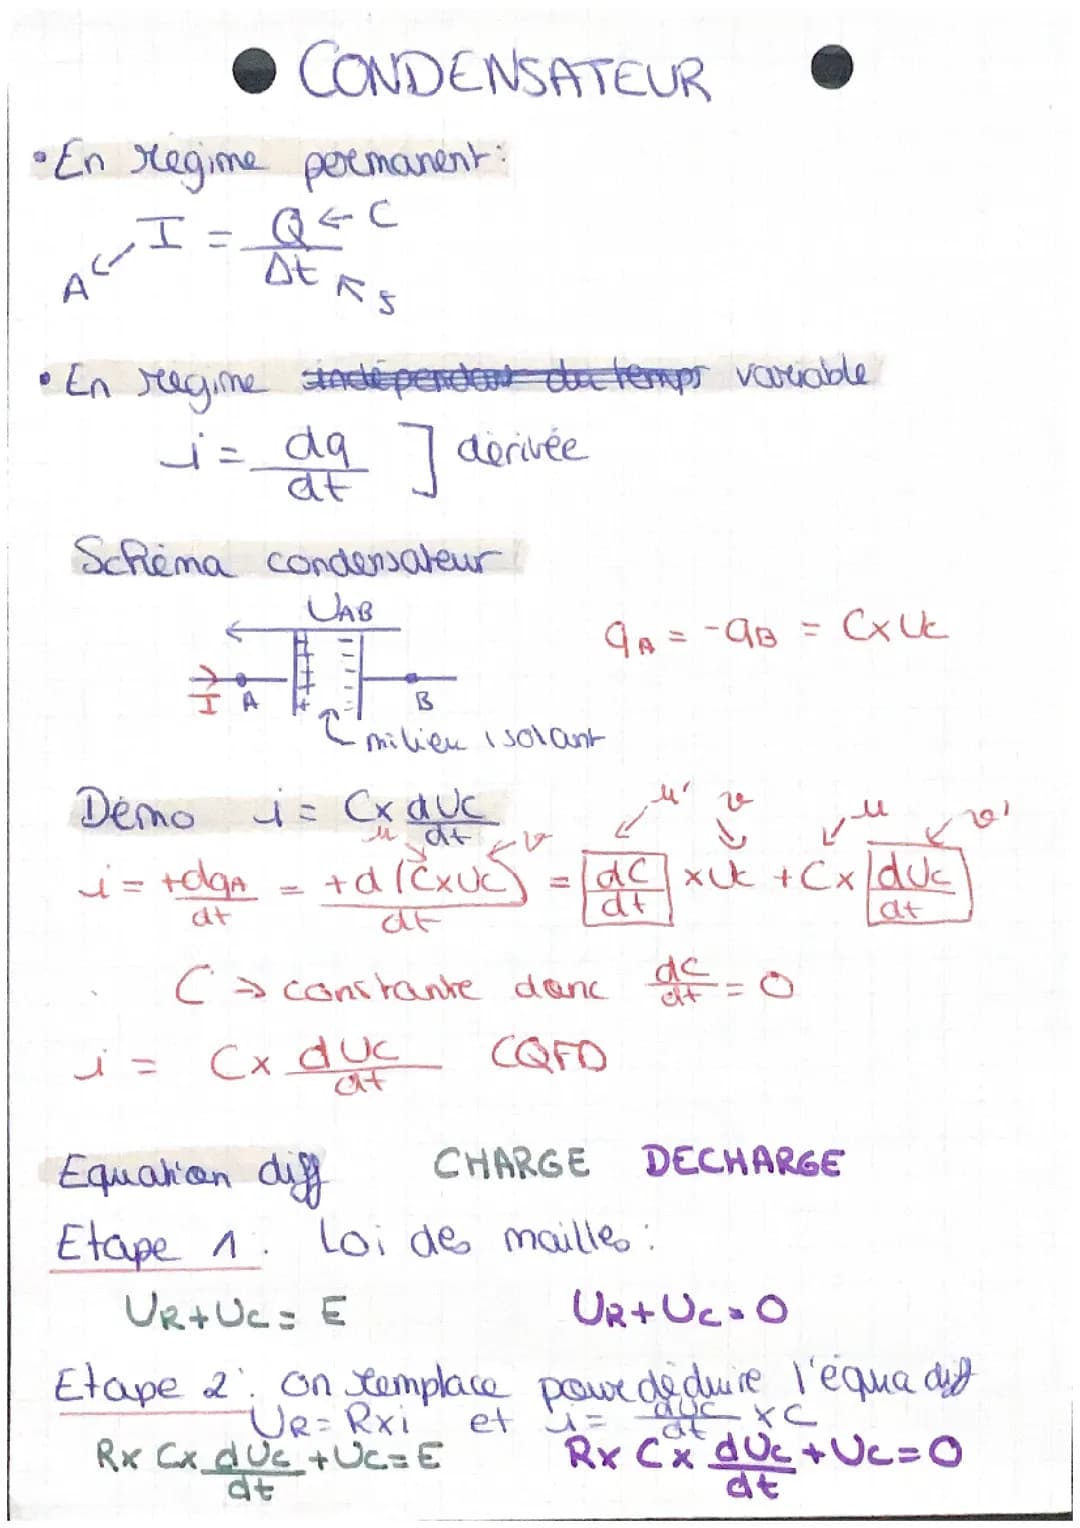 CONDENSATEUR
• En régime permanent:
I = Q/Δt
A
C
s
• En régime indépendant du temps variable
i = dq/dt ] dérivée
Schéma condensateur
UAB
qA = -qB = C x Uc
I A B
milieu isolant
Démo i = C x dUc/dt
u v u' v u v'
i = +dqA/dt = +d(C x Uc)/dt = dC/dt x Uc + C x dUc/dt
C → constante donc dC/dt = 0
i = C x dUc/dt CQFD
Equation diff CHARGE DECHARGE
Etape 1. Loi des mailles:
UR + Uc = E UR + Uc = 0
Etape 2. on remplace pour déduire l'équa diff
UR = R x i et i = dUc/dt x C
R x C x dUc/dt + Uc = E R x C x dUc/dt + Uc = 0